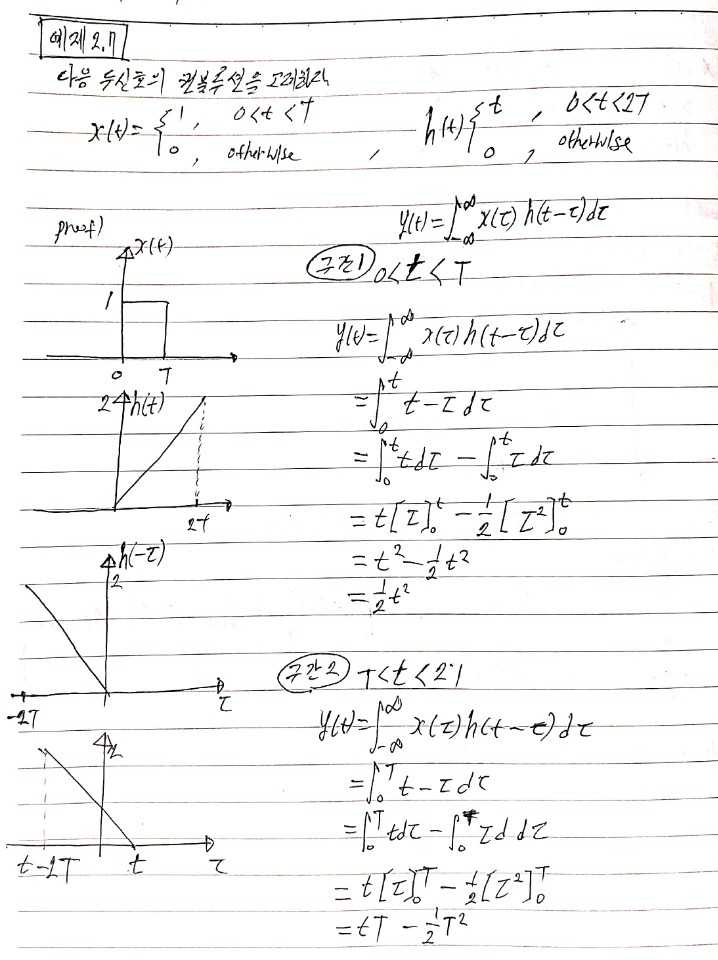 예제 2.7
다음 두신호의 컨볼루션을 고려하라
x(t)= { 1, 0<t<T
0, otherwise
, h(t) { t, 0<t<2T
0, otherwise
proof)
x(t)
1
0 T
2 h(t)
2T
h(-τ)
2
-2T τ
2
t-2T t τ
y(t)=∫_{-∞}^{∞} x(τ) h(t-τ)dτ
구간1 0<t<T
y(t)=∫_{-∞}^{∞} x(τ)h(t-τ)dτ
=∫_0^t t-τ dτ
=∫_0^t t dτ - ∫_0^t τ dτ
= t[τ]_0^t - 1/2 [τ²]_0^t
= t² - 1/2 t²
= 1/2 t²
구간2 T<t<2T
y(t)=∫_{-∞}^{∞} x(τ)h(t-τ)dτ
=∫_0^T t-τ dτ
=∫_0^T t dτ - ∫_0^T τ d dτ
= t[τ]_0^T - 1/2 [τ²]_0^T
= tT - 1/2 T²